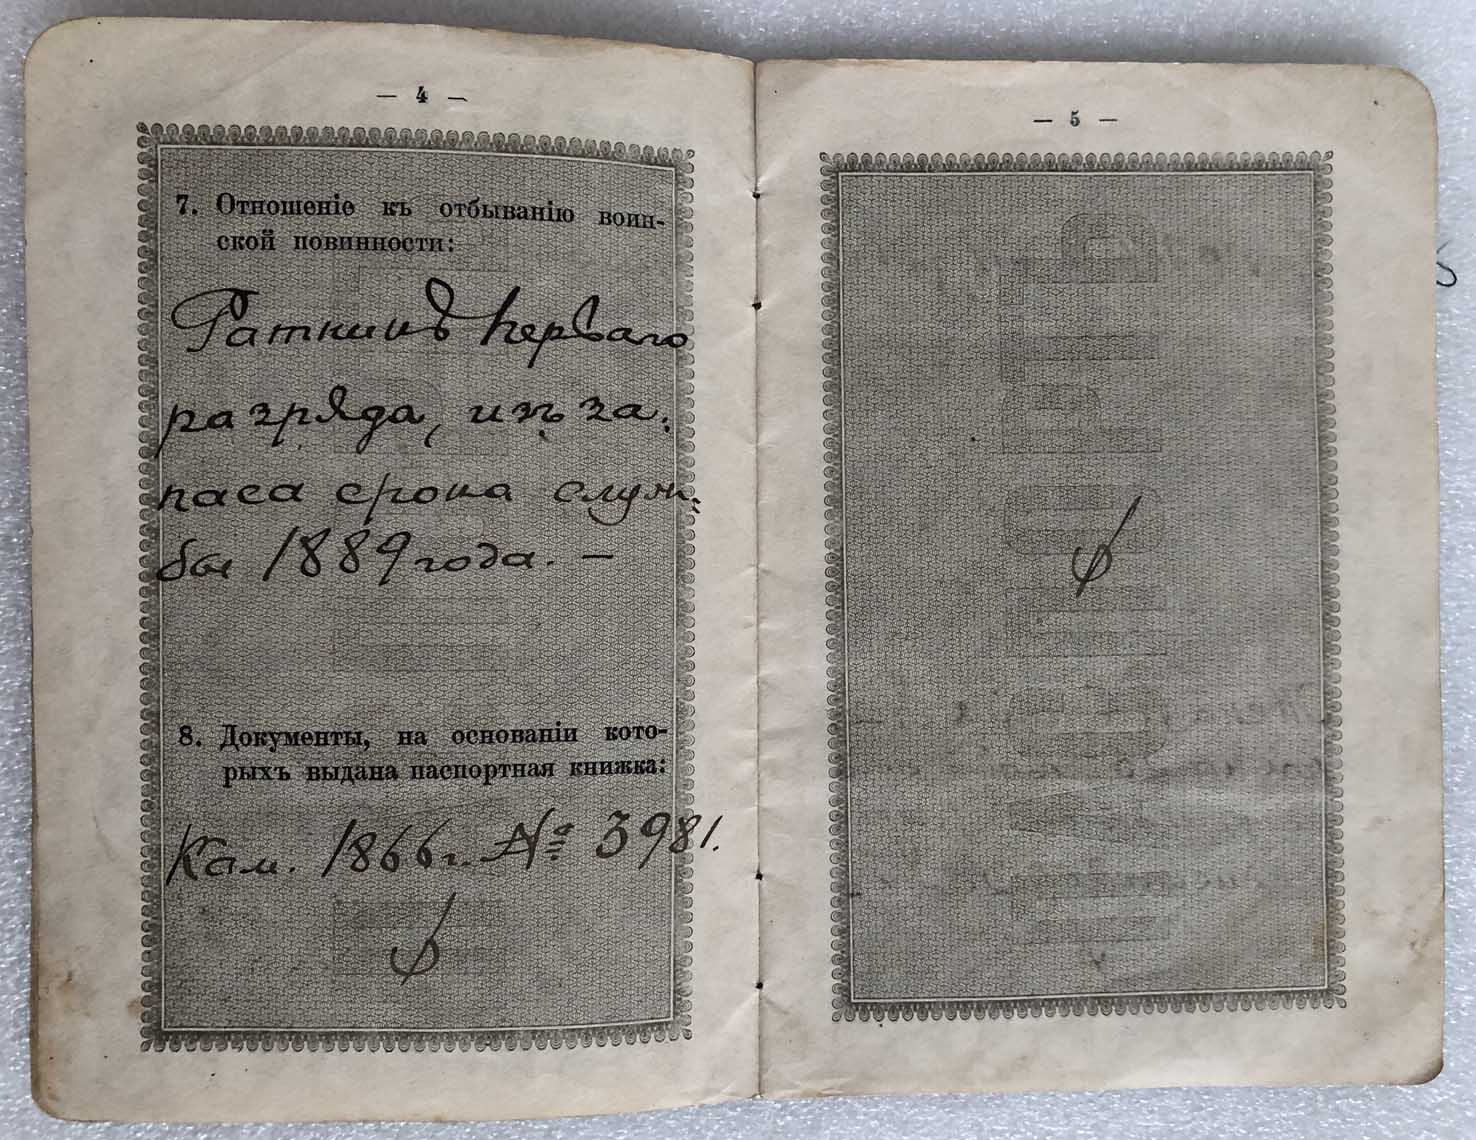 — 4 —
7. Отношеніе къ отбыванію воин-
ской повинности:
Ратникъ перваго
разряда, изъ за-
паса срока служ-
бы 1889 года. —
8. Документы, на основаніи кото-
рыхъ выдана паспортная книжка:
Кам. 1866 г. № 3981.
— 5 —